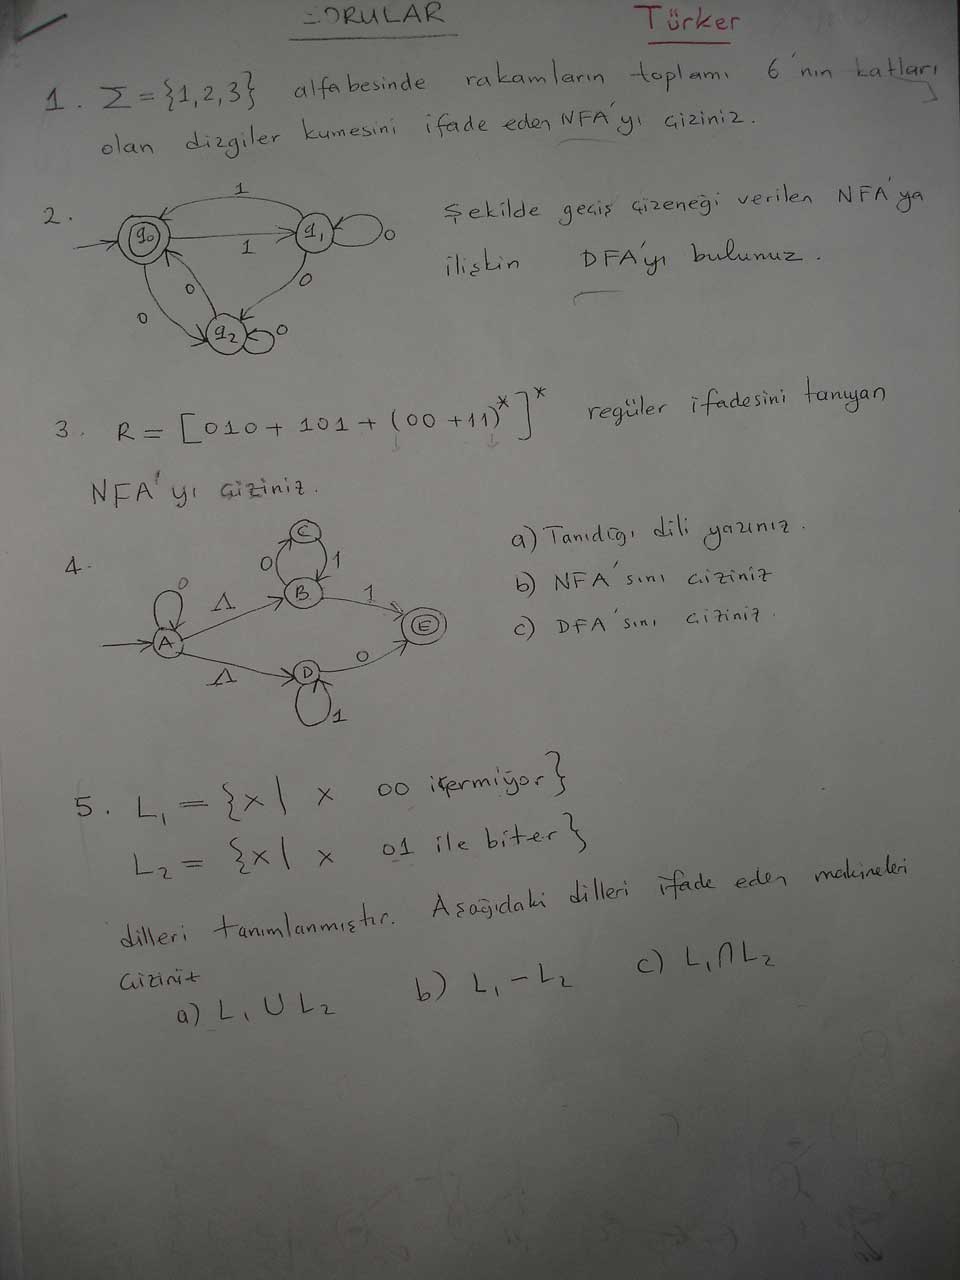 SORULAR
Türker
1. Σ = {1,2,3} alfabesinde rakamların toplamı 6'nın katları
olan dizgiler kumesini ifade eden NFA'yı çiziniz.
2.
q0
q1
q2
1
1
0
0
0
0
0
Şekilde geçiş çizeneği verilen NFA'ya
ilişkin DFA'yı bulunuz.
3. R = [010 + 101 + (00 + 11)*]* regüler ifadesini tanıyan
NFA'yı çiziniz.
4.
0
A
Λ
B
0
C
1
1
E
Λ
D
0
1
a) Tanıdığı dili yazınız.
b) NFA'sını çiziniz
c) DFA'sını çiziniz.
5. L1 = {x| x 00 içermiyor}
L2 = {x| x 01 ile biter}
dilleri tanımlanmıştır. Aşağıdaki dilleri ifade eden makineleri
çiziniz
a) L1 ∪ L2 b) L1 - L2 c) L1 ∩ L2